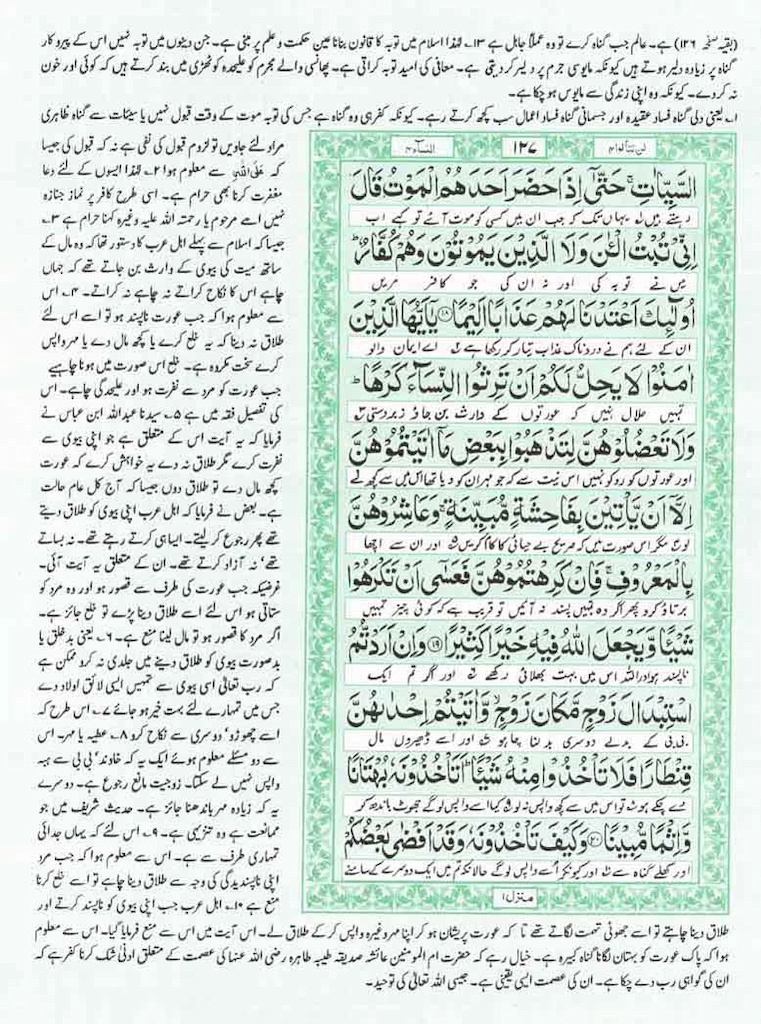 (بقیہ صفحہ ۱۲۶) ہے۔ عالم جب گناہ کرے تو وہ عملاً جاہل ہے ۱۳؎ لہٰذا اسلام میں توبہ کا قانون بنانا عین حکمت و علم پر مبنی ہے۔ جن دینوں میں توبہ نہیں اس کے پیروکار
گناہ پر زیادہ دلیر ہوتے ہیں کیونکہ مایوسی جرم پر دلیر کر دیتی ہے۔ معافی کی امید توبہ کراتی ہے۔ پھانسی والے مجرم کو علیحدہ کوٹھڑی میں بند کرتے ہیں کہ کوئی اور خون
نہ کر دے۔ کیونکہ وہ اپنی زندگی سے مایوس ہو چکا ہے۔
۱؎ یعنی دلی گناہ فساد عقیدہ اور جسمانی گناہ فساد اعمال سب کچھ کرتے رہے۔ کیونکہ کفر ہی وہ گناہ ہے جس کی توبہ موت کے وقت قبول نہیں یا سیئات سے گناہ ظاہری
مراد لئے جاویں تو لزوم قبول کی نفی ہے نہ کہ قبول کی جیسا
کہ عَلَی اللّٰہِ سے معلوم ہوا ۲؎ لہٰذا ایسوں کے لئے دعا
مغفرت کرنا بھی حرام ہے۔ اسی طرح کافر پر نماز جنازہ
نہیں اسے مرحوم یا رحمتہ اللہ علیہ وغیرہ کہنا حرام ہے ۳؎
جیسا کہ اسلام سے پہلے اہل عرب کا دستور تھا کہ وہ مال کے
ساتھ میت کی بیوی کے وارث بن جاتے تھے کہ جہاں
چاہے اس کا نکاح کراتے نہ چاہے نہ کراتے۔ ۴؎ اس
سے معلوم ہوا کہ جب عورت ناپسند ہو تو اسے اس لئے
طلاق نہ دینا کہ یہ خلع کرے یا کچھ مال دے یا مہر واپس
کرے سخت مکروہ ہے۔ خلع اس صورت میں ہونا چاہیے
جب عورت کو مرد سے نفرت ہو اور علیحدگی چاہے۔ اس
کی تفصیل فقہ میں ہے ۵؎ سیدنا عبداللہ ابن عباس نے
فرمایا کہ یہ آیت اس کے متعلق ہے جو اپنی بیوی سے
نفرت کرے مگر طلاق نہ دے یہ خواہش کرے کہ عورت
کچھ مال دے تو طلاق دوں جیسا کہ آج کل عام حالت
ہے۔ بعض نے فرمایا کہ اہل عرب اپنی بیوی کو طلاق دیتے
تھے پھر رجوع کر لیتے۔ ایسا ہی کرتے رہتے تھے۔ نہ بساتے
تھے' نہ آزاد کرتے تھے۔ ان کے متعلق یہ آیت آئی۔
غرضیکہ جب عورت کی طرف سے قصور ہو اور وہ مرد کو
ستاتی ہو اس لئے اسے طلاق دینا پڑے تو خلع جائز ہے۔
اگر مرد کا قصور ہو تو مال لینا منع ہے۔ ۶؎ یعنی بدخلق یا
بدصورت بیوی کو طلاق دینے میں جلدی نہ کرو ممکن ہے
کہ رب تعالیٰ اسی بیوی سے تمہیں ایسی لائق اولاد دے
جس میں تمہارے لئے بہت خیر ہو جائے ۷؎ اس طرح کہ
اسے چھوڑو' دوسری سے نکاح کرو ۸؎ عطیہ یا مہر۔ اس
سے دو مسئلے معلوم ہوئے ایک یہ کہ خاوند' بی بی سے ہبہ
واپس نہیں لے سکتا۔ زوجیت مانع رجوع ہے۔ دوسرے
یہ کہ زیادہ مہر باندھنا جائز ہے۔ حدیث شریف میں جو
ممانعت ہے وہ تنزیہی ہے۔ ۹؎ اس لئے کہ یہاں جدائی
تمہاری طرف سے ہے۔ اس سے معلوم ہوا کہ جب مرد
اپنی ناپسندیدگی کی وجہ سے طلاق دینا چاہے تو اسے خلع کرنا
منع ہے ۱۰؎ اہل عرب جب اپنی بیوی کو ناپسند کرتے اور
لن تنالوا ۴
۱۲۷
النسآء ۴
السَّيِّاٰتِ ۚ حَتّٰٓى اِذَا حَضَرَ اَحَدَهُمُ الْمَوْتُ قَالَ
رہتے ہیں ۱؎ یہاں تک کہ جب ان میں کسی کو موت آئے تو کہے اب
اِنِّىْ تُبْتُ الْـٰٔنَ وَلَا الَّذِيْنَ يَمُوْتُوْنَ وَهُمْ كُفَّارٌ ؕ
میں نے توبہ کی اور نہ ان کی جو کافر مریں
اُولٰٓئِكَ اَعْتَدْنَا لَهُمْ عَذَابًا اَلِيْمًا ۝۱۸ يٰٓاَيُّهَا الَّذِيْنَ
ان کے لئے ہم نے دردناک عذاب تیار کر رکھا ہے ۲؎ اے ایمان والو
اٰمَنُوْا لَا يَحِلُّ لَكُمْ اَنْ تَرِثُوا النِّسَآءَ كَرْهًا ؕ
تمہیں حلال نہیں کہ عورتوں کے وارث بن جاؤ زبردستی ۳؎
وَلَا تَعْضُلُوْهُنَّ لِتَذْهَبُوْا بِبَعْضِ مَاۤ اٰتَيْتُمُوْهُنَّ
اور عورتوں کو روکو نہیں اس نیت سے کہ جو مہر ان کو دیا تھا اس میں سے کچھ لے
اِلَّاۤ اَنْ يَّاْتِيْنَ بِفَاحِشَةٍ مُّبَيِّنَةٍ ۚ وَعَاشِرُوْهُنَّ
لو ۴؎ مگر اس صورت میں کہ صریح بے حیائی کا کام کریں ۵؎ اور ان سے اچھا
بِالْمَعْرُوْفِ ۚ فَاِنْ كَرِهْتُمُوْهُنَّ فَعَسٰٓى اَنْ تَكْرَهُوْا
برتاؤ کرو پھر اگر وہ تمہیں پسند نہ آئیں تو قریب ہے کہ کوئی چیز تمہیں
شَيْـًٔا وَّيَجْعَلَ اللّٰهُ فِيْهِ خَيْرًا كَثِيْرًا ۝۱۹ وَاِنْ اَرَدْتُّمُ
ناپسند ہو اور اللہ اس میں بہت بھلائی رکھے ۶؎ اور اگر تم ایک
اسْتِبْدَالَ زَوْجٍ مَّكَانَ زَوْجٍ ۙ وَّاٰتَيْتُمْ اِحْدٰىهُنَّ
بی بی کے بدلے دوسری بدلنا چاہو ۷؎ اور اسے ڈھیروں مال
قِنْطَارًا فَلَا تَاْخُذُوْا مِنْهُ شَيْـًٔا ؕ اَتَاْخُذُوْنَهٗ بُهْتَانًا
دے چکے ہو ۸؎ تو اس میں سے کچھ واپس نہ لو ۹؎ کیا اسے واپس لو گے جھوٹ باندھ کر
وَّاِثْمًا مُّبِيْنًا ۝۲۰ وَكَيْفَ تَاْخُذُوْنَهٗ وَقَدْ اَفْضٰى بَعْضُكُمْ
اور کھلے گناہ سے ۱۰؎ اور کیونکر اسے واپس لو گے حالانکہ تم میں ایک دوسرے کے سامنے
منزل ۱
طلاق دینا چاہتے تو اسے جھوٹی تہمت لگاتے تھے تا کہ عورت پریشان ہو کر اپنا مہر وغیرہ واپس کر کے طلاق لے۔ اس آیت میں اس سے منع فرمایا گیا۔ اس سے معلوم
ہوا کہ پاک عورت کو بہتان لگانا گناہ کبیرہ ہے۔ خیال رہے کہ حضرت ام المومنین عائشہ صدیقہ طیبہ طاہرہ رضی اللہ عنہا کی عصمت کے متعلق ادنیٰ شک کرنا کفر ہے کہ
ان کی گواہی رب دے چکا ہے۔ ان کی عصمت ایسی یقینی ہے۔ جیسی اللہ تعالیٰ کی توحید۔